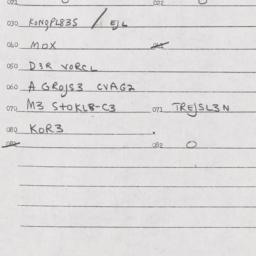 030 KONQPL83S / EJL
040 MOX
050 D3R VORCL
060 A GROJS3 CVAG2
070 M3 STOKL8-C3 071 TREJSL3N
080 KOR3
082 O